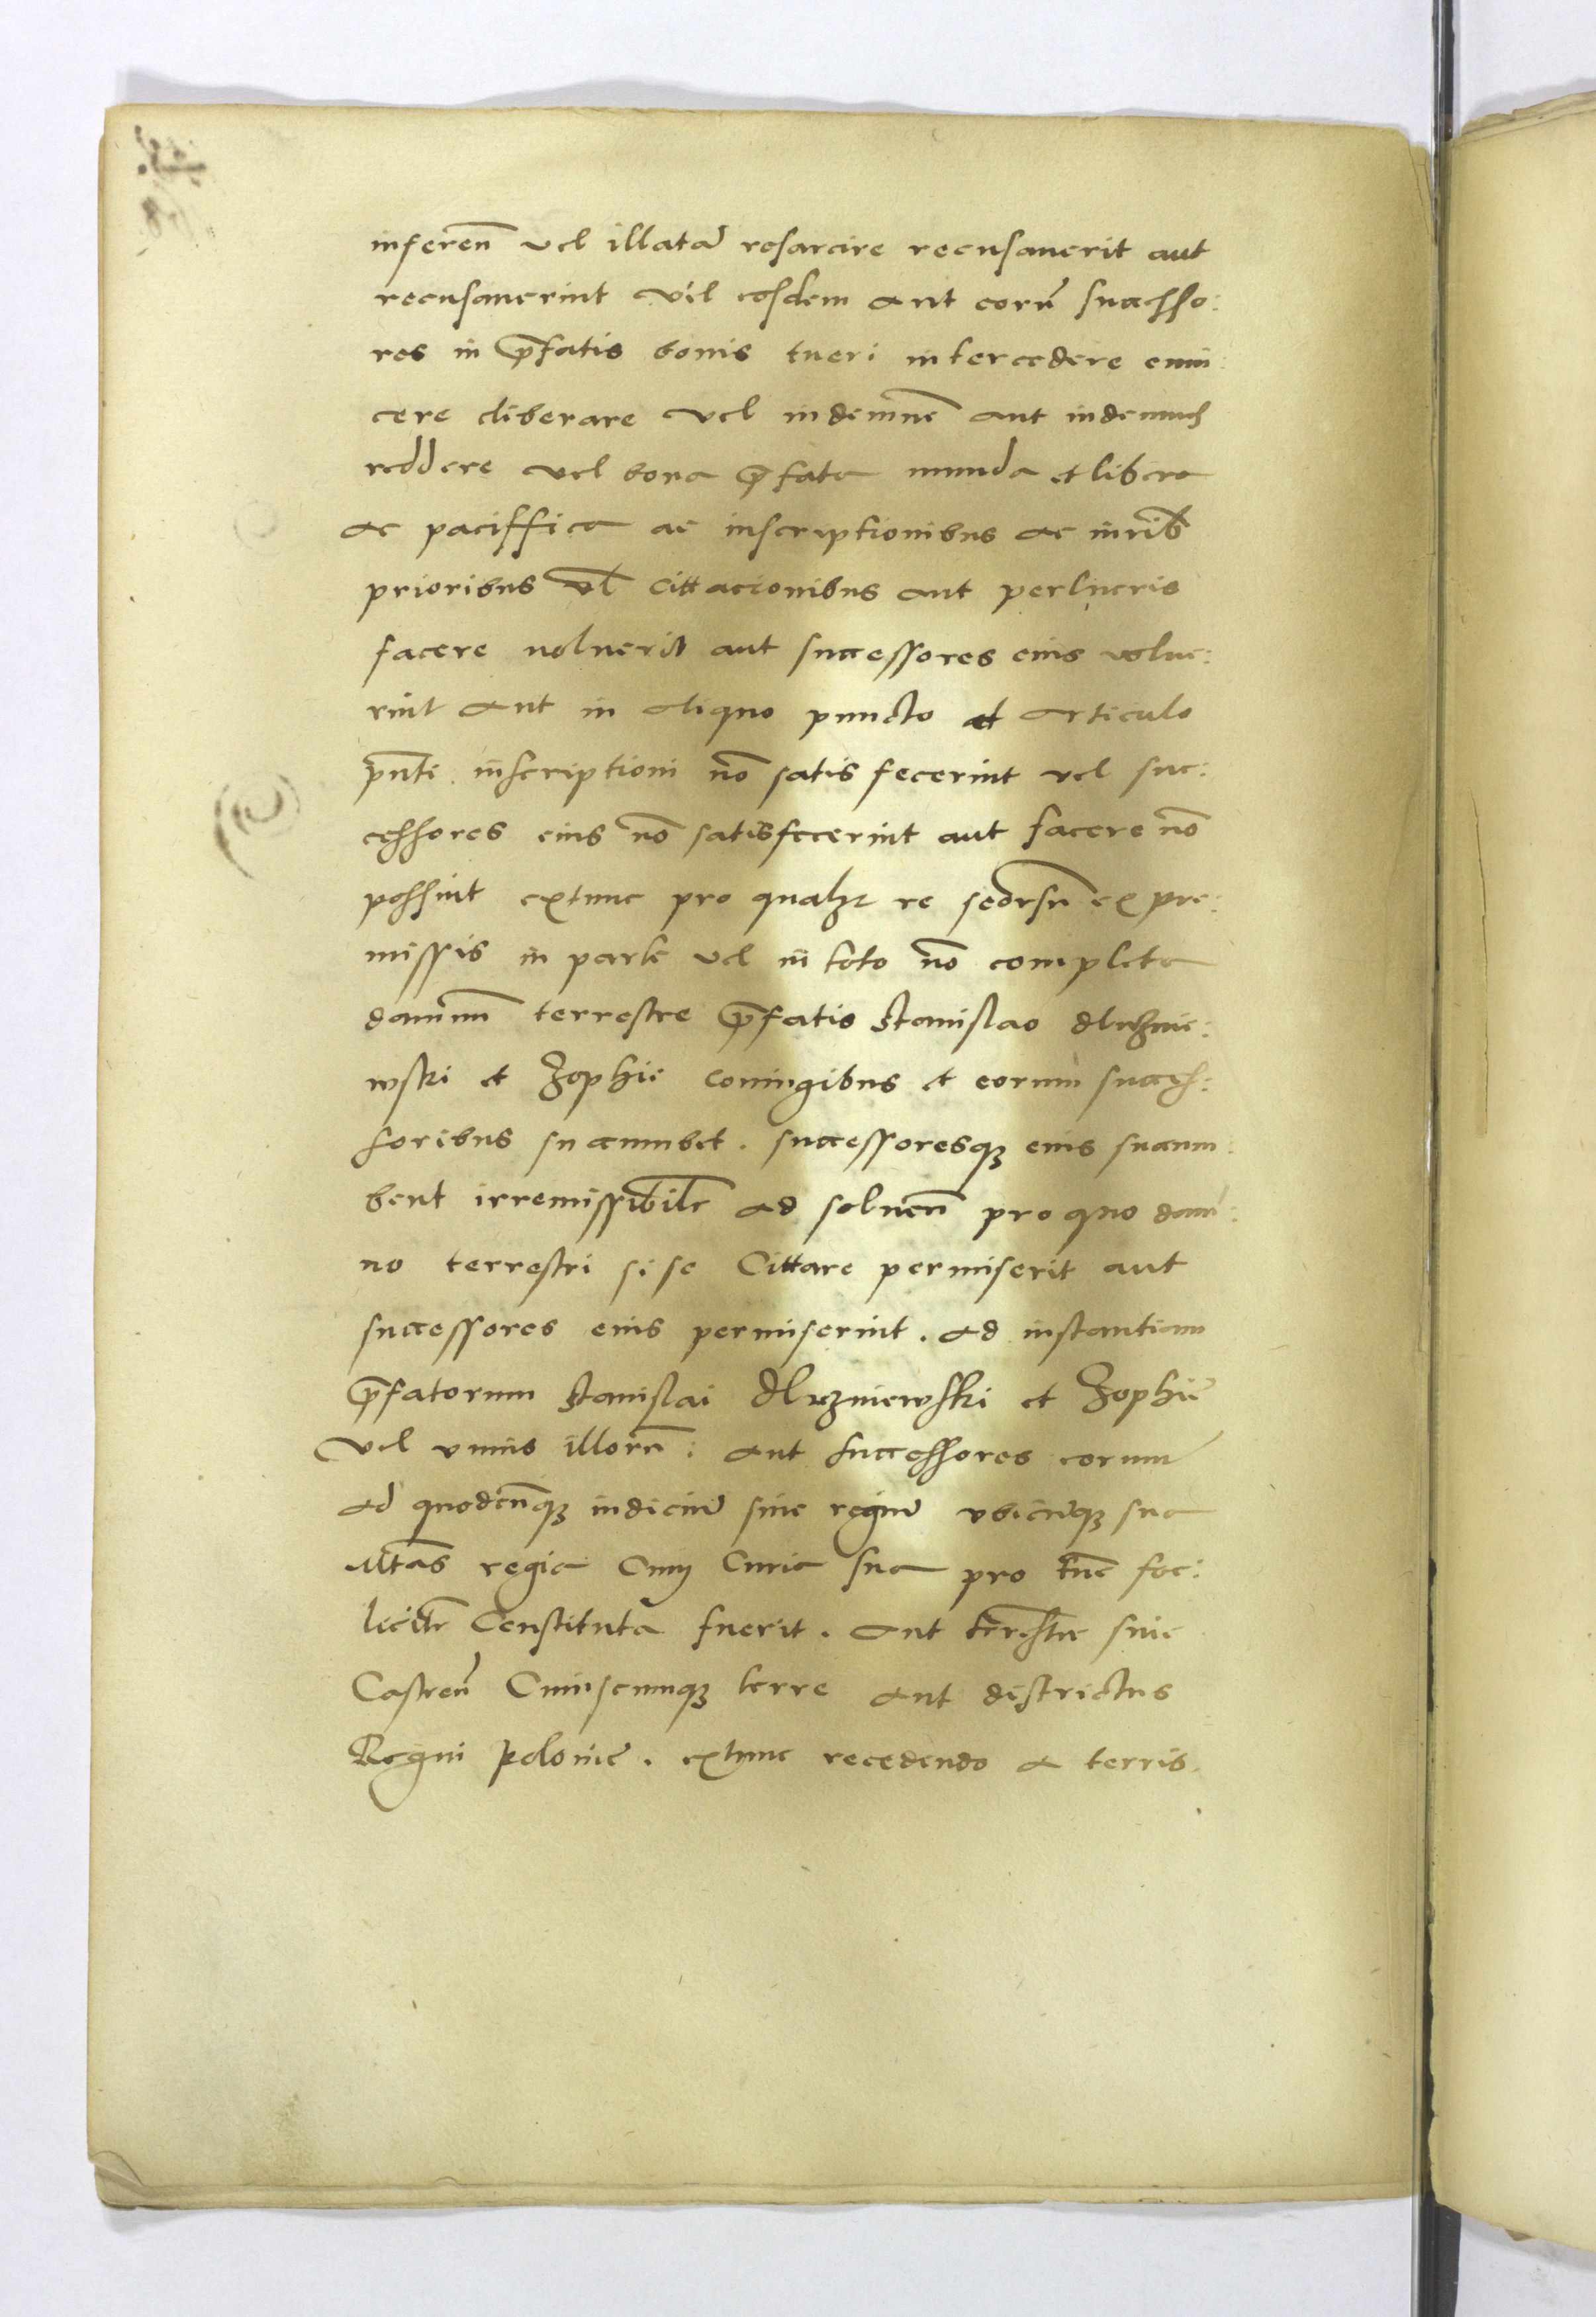 inferen̄ vel illatā resarcire recusauerit aut
recusauerint vel eosdem aut eorū successo:
res in p̄fatis bonis tueri intercedere euin:
cere eliberare vel indemnē aut indemnes
reddere vel bona p̄fata munda et libera
ac paciffica ac inscriptionibus ac iurib
prioribus vl̄ cittacionibus aut perlucris
facere noluerit aut successores eius nolue:
rint aut in aliquo puncto et articulo
p̄nti inscriptioni nō satis fecerint vel suc:
cessores eius nō satisfecerint aut facere nō
possint extunc pro qualȝt re seorsū ex pre:
missis in parte vel in toto nō completa
damnū terrestre p̄fatis Stanislao dluznie:
wski et Zophie coniugibus et eorum succes:
soribus succumbet . successoresqȝ eius succum:
bent irremissibilr̄ ad soluen̄ pro quo dam:
no terrestri si se Cittare permiserit aut
successores eius permiserint . ad instantiam
p̄fatorum Stanislai Dluzniewski et Zophie
vel vnius illorū : aut successores eorum
ad quodcūqȝ iudiciū siue regiū vbicūqȝ sua
Mtas regia Cum Curia sua pro tūc foe:
licitr̄ Constituta fuerit . aut terrestre siue
Castren̄ Cuiuscunqȝ terre aut districtus
Regni Polonie . extunc recedendo a terris